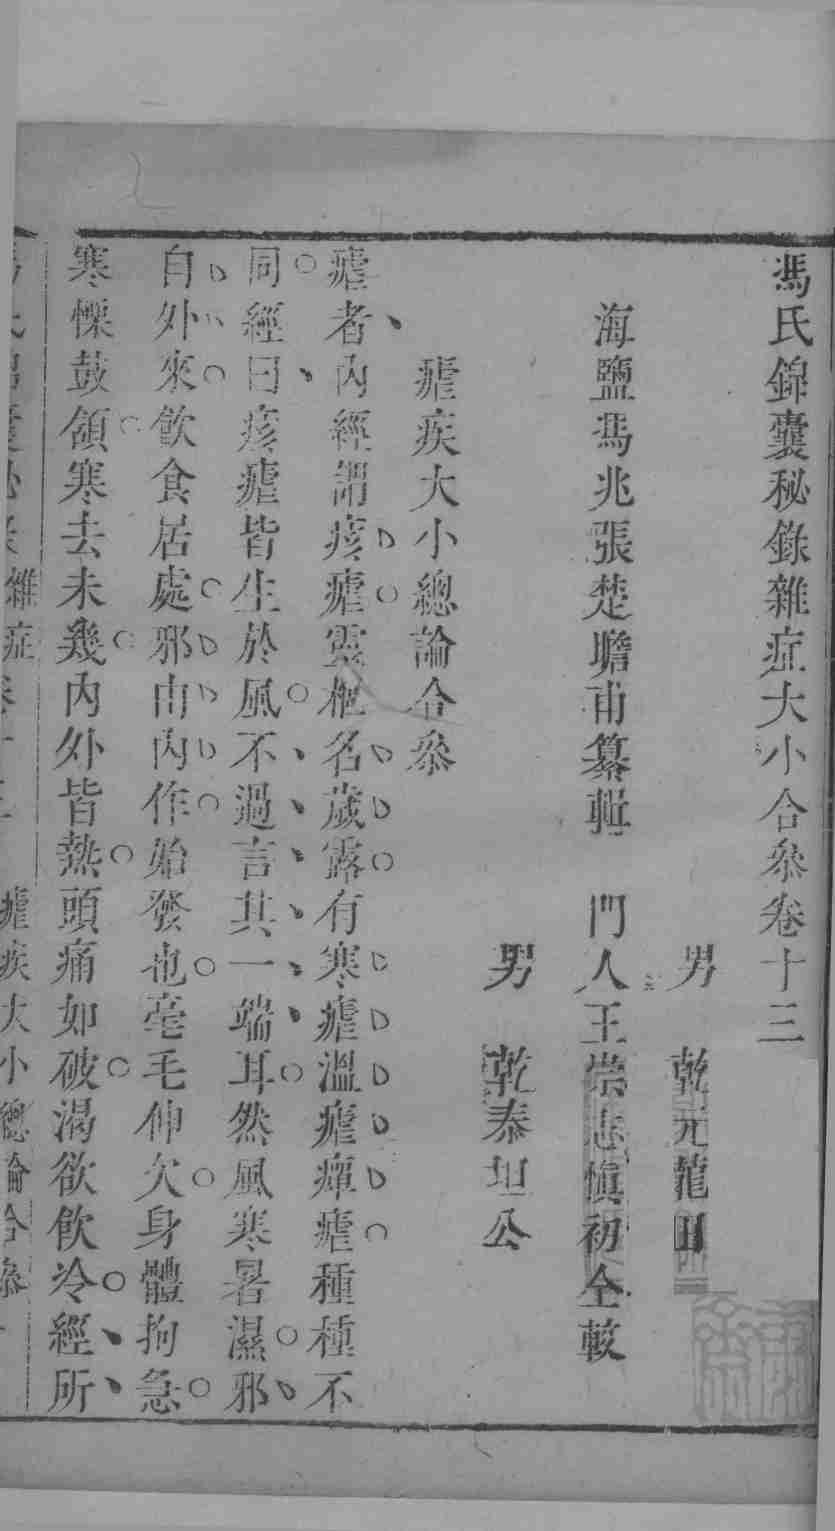 馮氏錦囊秘錄雜症大小合叅卷十三
男 乾元龍田
海鹽馮兆張楚瞻甫纂輯 門人王崇志慎初仝較
男 乾泰坦公
瘧疾大小總論合叅
瘧者內經謂痎瘧靈樞名歲露有寒瘧溫瘧癉瘧種種不
同經曰痎瘧皆生於風不過言其一端耳然風寒暑濕邪
自外來飲食居處邪由內作始發也毫毛伸欠身體拘急
寒慄鼓頷寒去未幾內外皆熱頭痛如破渴欲飲冷經所
雜症 瘧疾大小總論合叅